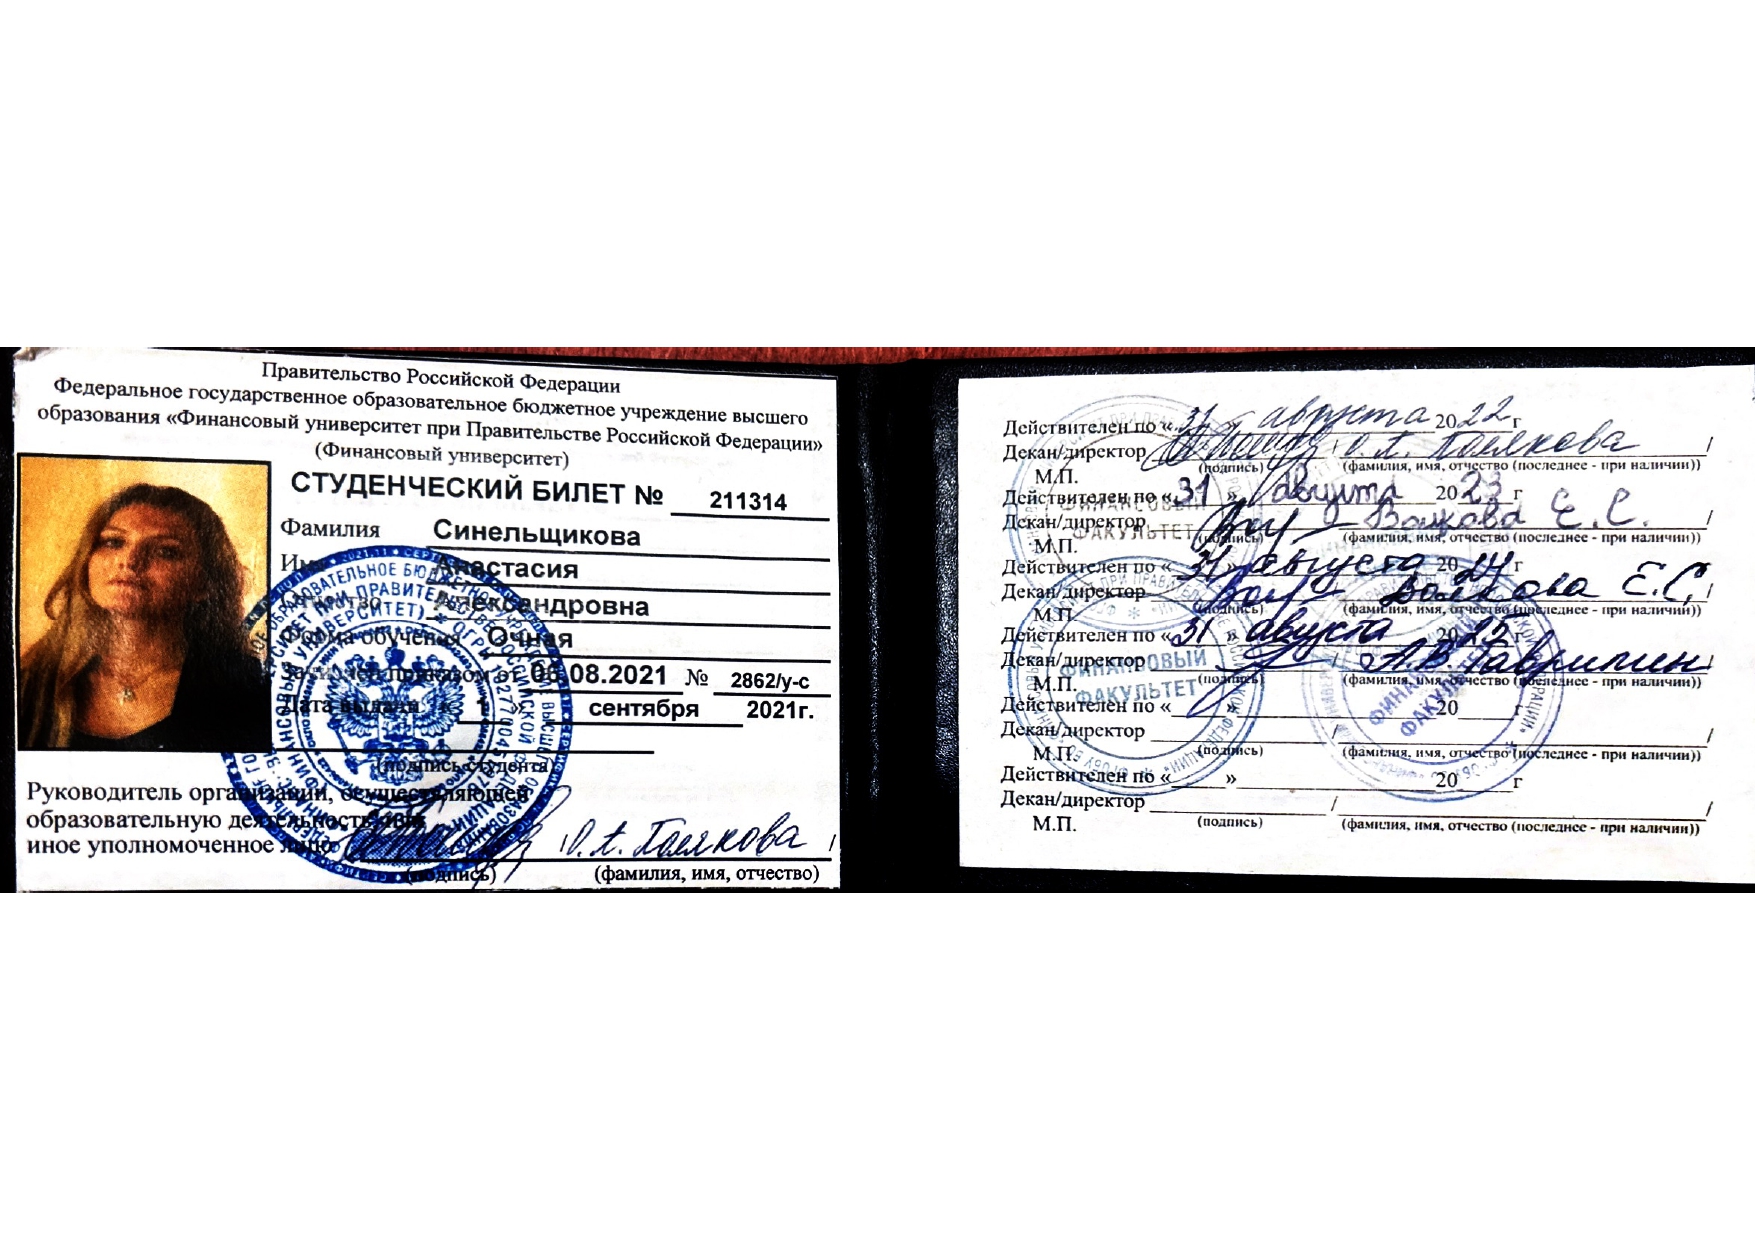 Правительство Российской Федерации
Федеральное государственное образовательное бюджетное учреждение высшего
образования «Финансовый университет при Правительстве Российской Федерации»
(Финансовый университет)
СТУДЕНЧЕСКИЙ БИЛЕТ № 211314
Фамилия Синельщикова
Имя Анастасия
Отчество Александровна
Форма обучения Очная
Зачислен приказом от 06.08.2021 № 2862/у-с
Дата выдачи « 1 » сентября 2021г.
(подпись студента)
Руководитель организации, осуществляющей
образовательную деятельность
иное уполномоченное лицо
(подпись) (фамилия, имя, отчество)
Действителен по «31» августа 2022г
Декан/директор / /
(подпись) (фамилия, имя, отчество (последнее - при наличии))
М.П.
Действителен по «31» августа 2023г
Декан/директор Волкова Е.С. /
(подпись) (фамилия, имя, отчество (последнее - при наличии))
М.П.
Действителен по «31» августа 2024г
Декан/директор Волкова Е.С.
(подпись) (фамилия, имя, отчество (последнее - при наличии))
М.П.
Действителен по «31» августа 2025г
Декан/директор А.В. /
(подпись) (фамилия, имя, отчество (последнее - при наличии))
М.П.
Действителен по « » 20 г
Декан/директор / /
(подпись) (фамилия, имя, отчество (последнее - при наличии))
М.П.
Действителен по « » 20 г
Декан/директор / /
(подпись) (фамилия, имя, отчество (последнее - при наличии))
М.П.
ФИНАНСОВЫЙ
ФАКУЛЬТЕТ
ФИНАНСОВЫЙ
ФАКУЛЬТЕТ
ФАКУЛЬТЕТ